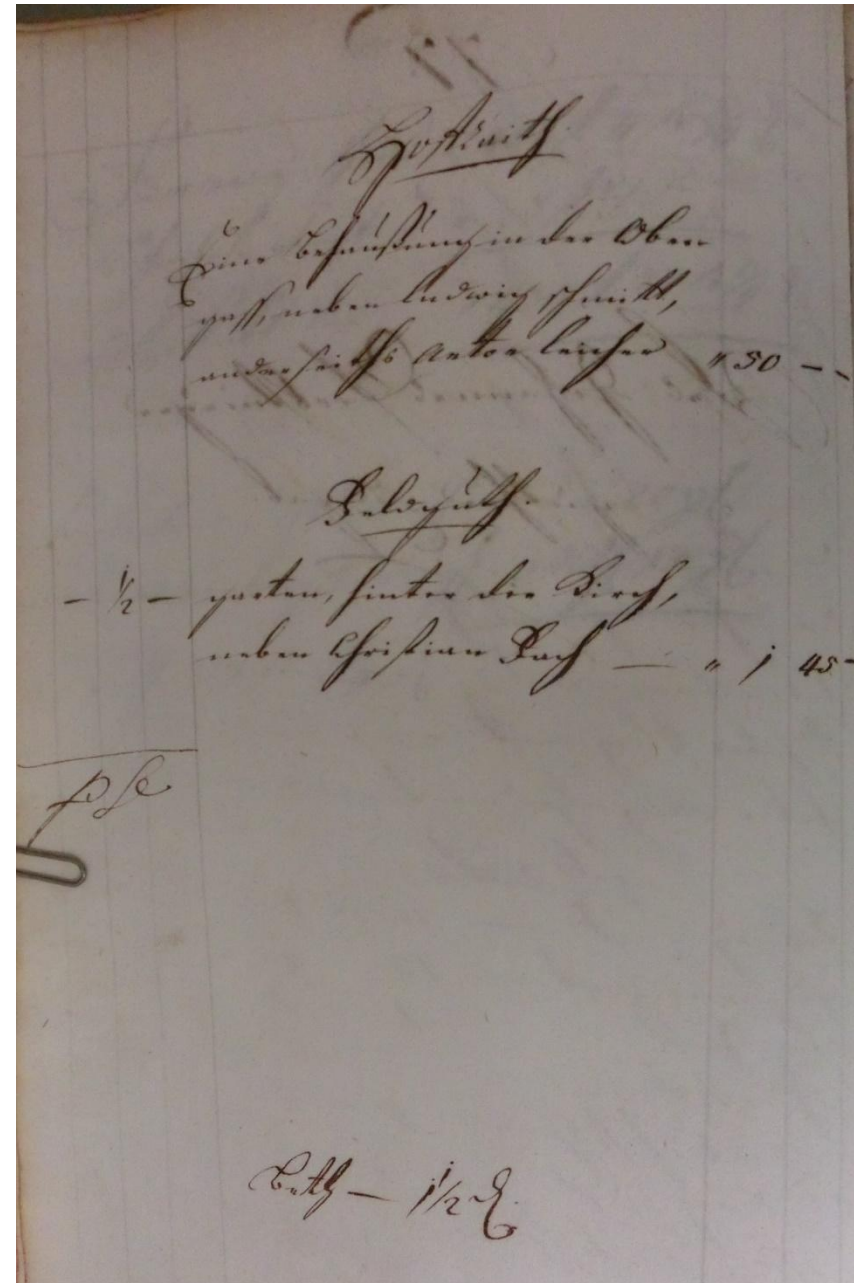 Hoffraith.
Eine Behaußung in der Ober
gass, neben Ludwig Schmitt,
anderseiths Anton Leicher " 50 – –
Feldguth.
– ½ – garten, hinter der Kirch,
neben Christian Bach — " 1 45 –
Beth — 1½